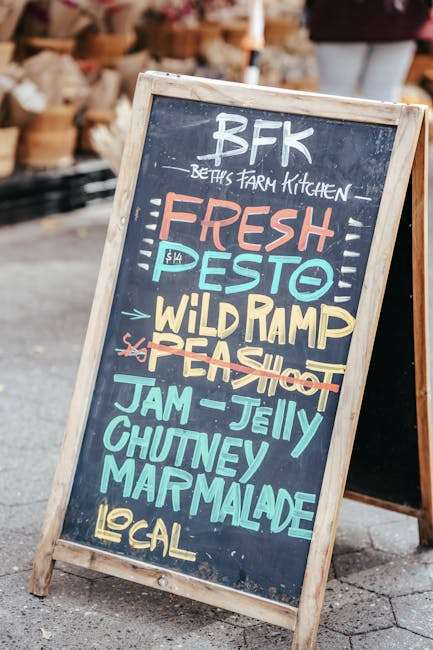 BFK
— BETH'S FARM KITCHEN —
FRESH
$14 PESTO
→ WILD RAMP
PEASHOOT
JAM - JELLY
CHUTNEY
MARMALADE
LOCAL